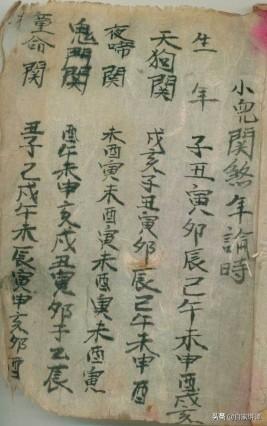 小兒関煞年論時
生年 子丑寅卯辰巳午未申酉戌亥
天狗関 戌亥子丑寅卯辰巳午未申酉
夜啼関 未酉寅未酉寅未酉寅未酉寅
鬼門関 酉午未申亥戌丑寅卯子巳辰
童命関 丑子巳戌午未辰寅申亥卯酉